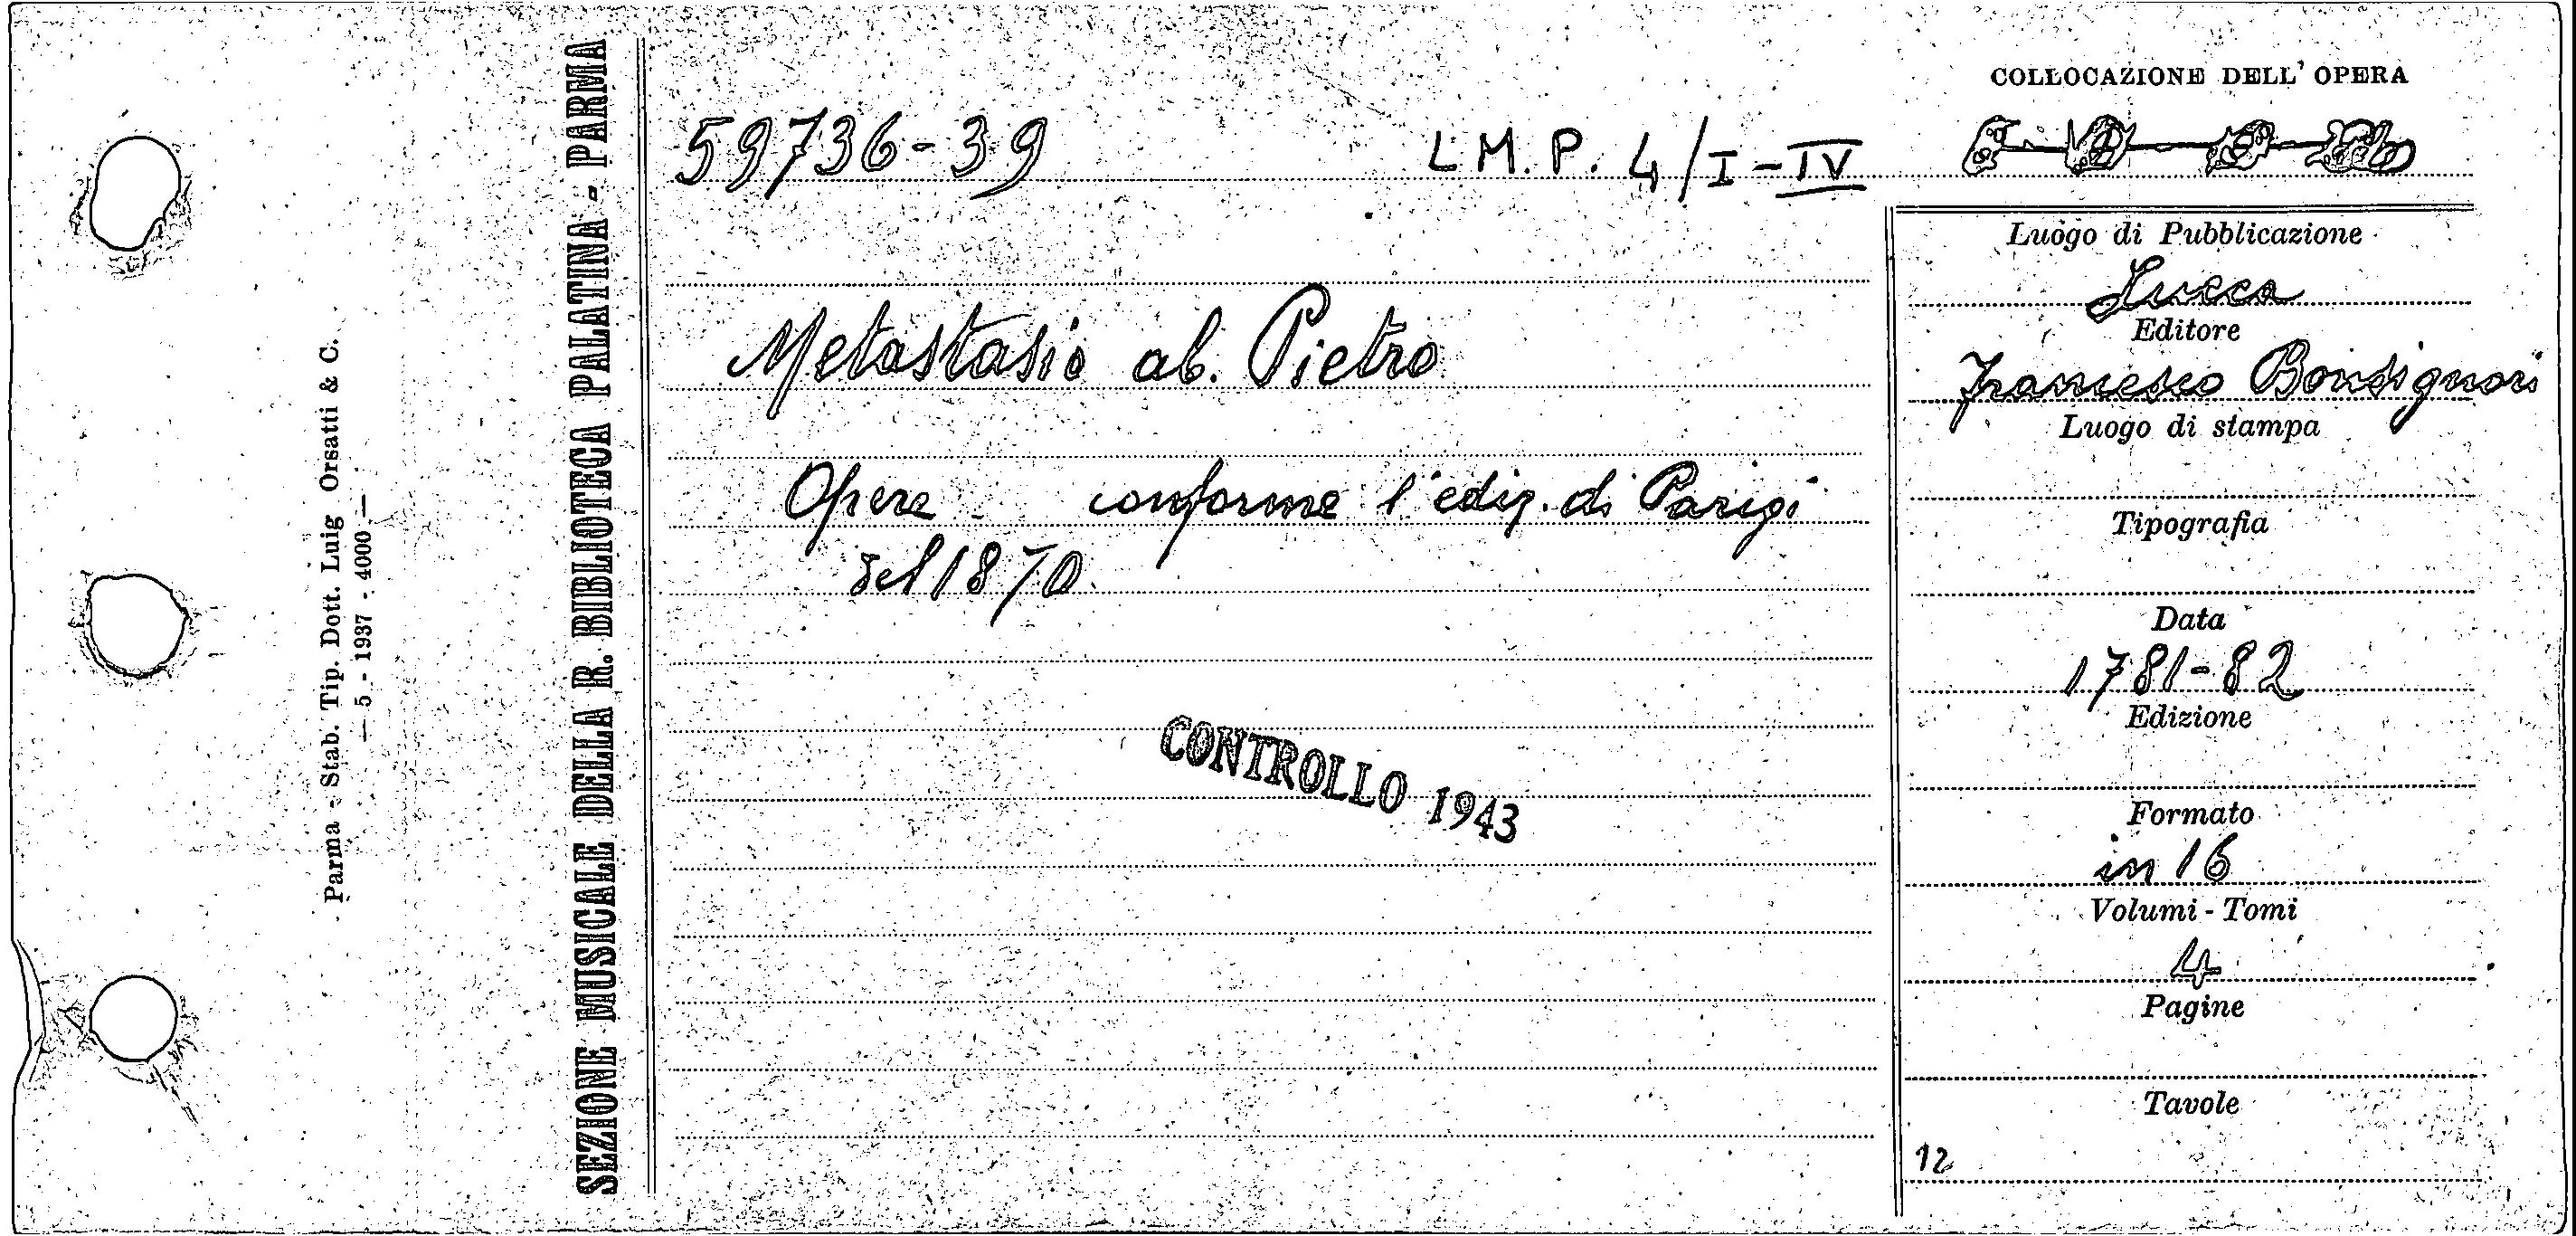 Parma - Stab. Tip. Dott. Luig Orsatti & C.
— 5 - 1937 - 4000 —
SEZIONE MUSICALE DELLA R. BIBLIOTECA PALATINA - PARMA
COLLOCAZIONE DELL' OPERA
59736-39 L M. P. 4/I-IV
Luogo di Pubblicazione
Lucca
Editore
Metastasio ab. Pietro
Francesco Bonsignori
Luogo di stampa
Opere conforme l'ediz. di Parigi
del 1870
Tipografia
Data
1781-82
Edizione
CONTROLLO 1943
Formato
in 16
Volumi - Tomi
4
Pagine
Tavole
12